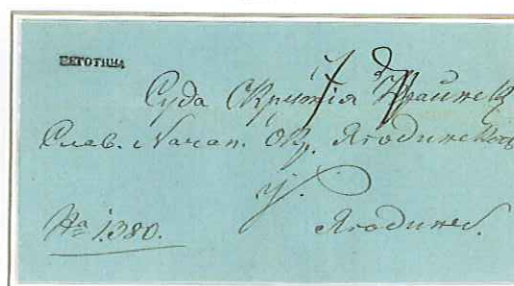 НЕГОТИНА
Суда Окружія Краинск
Слав. Начал. Окр. Ягодинскогъ
у
Ягодину.
№ 1380.